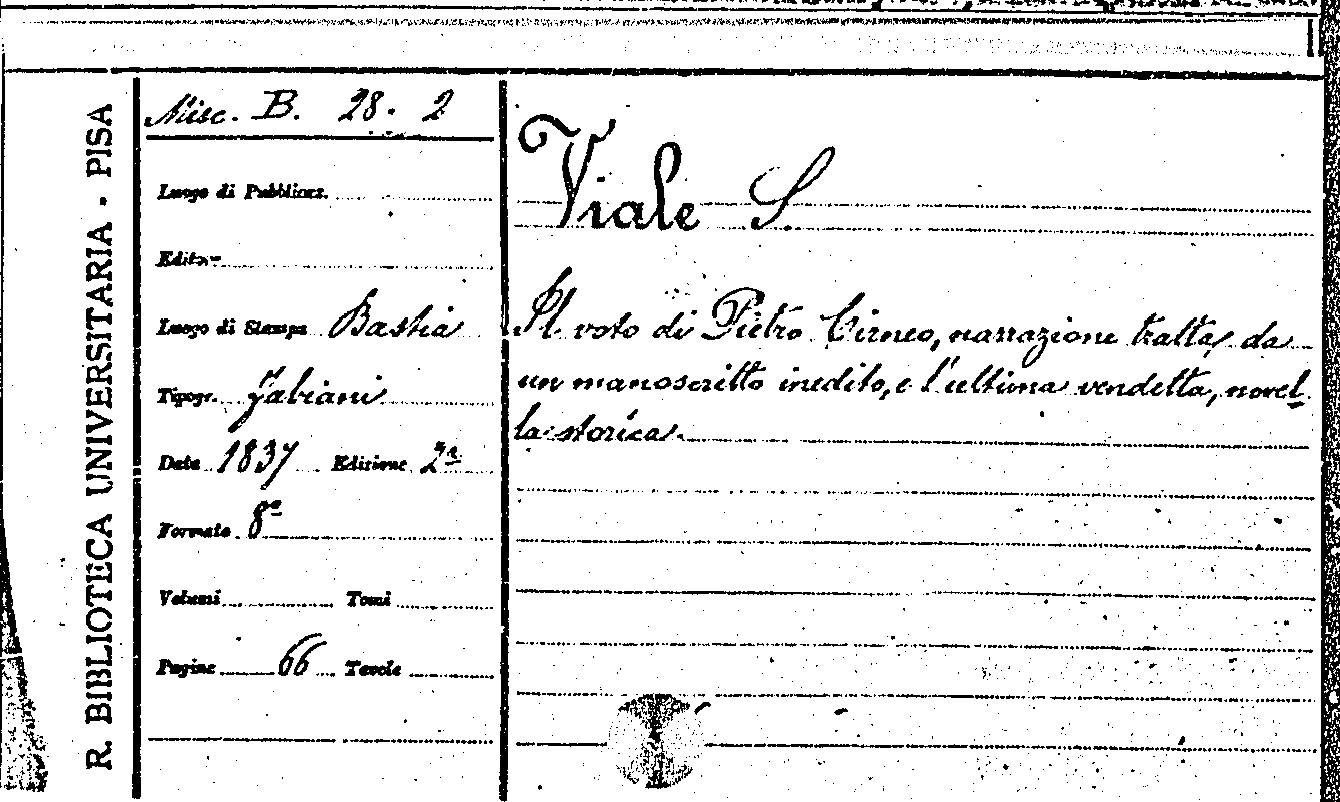 R. BIBLIOTECA UNIVERSITARIA - PISA
Misc. B. 28. 2
Luogo di Pubblicaz.
Editore
Luogo di Stampa Bastia
Tipogr. Fabiani
Data 1837 Edizione 2ª
Formato 8º
Volumi Tomi
Pagine 66 Tavole
Viale S.
Il voto di Pietro Cirneo, narrazione tratta da
un manoscritto inedito, e l'ultima vendetta, novel-
la storica.